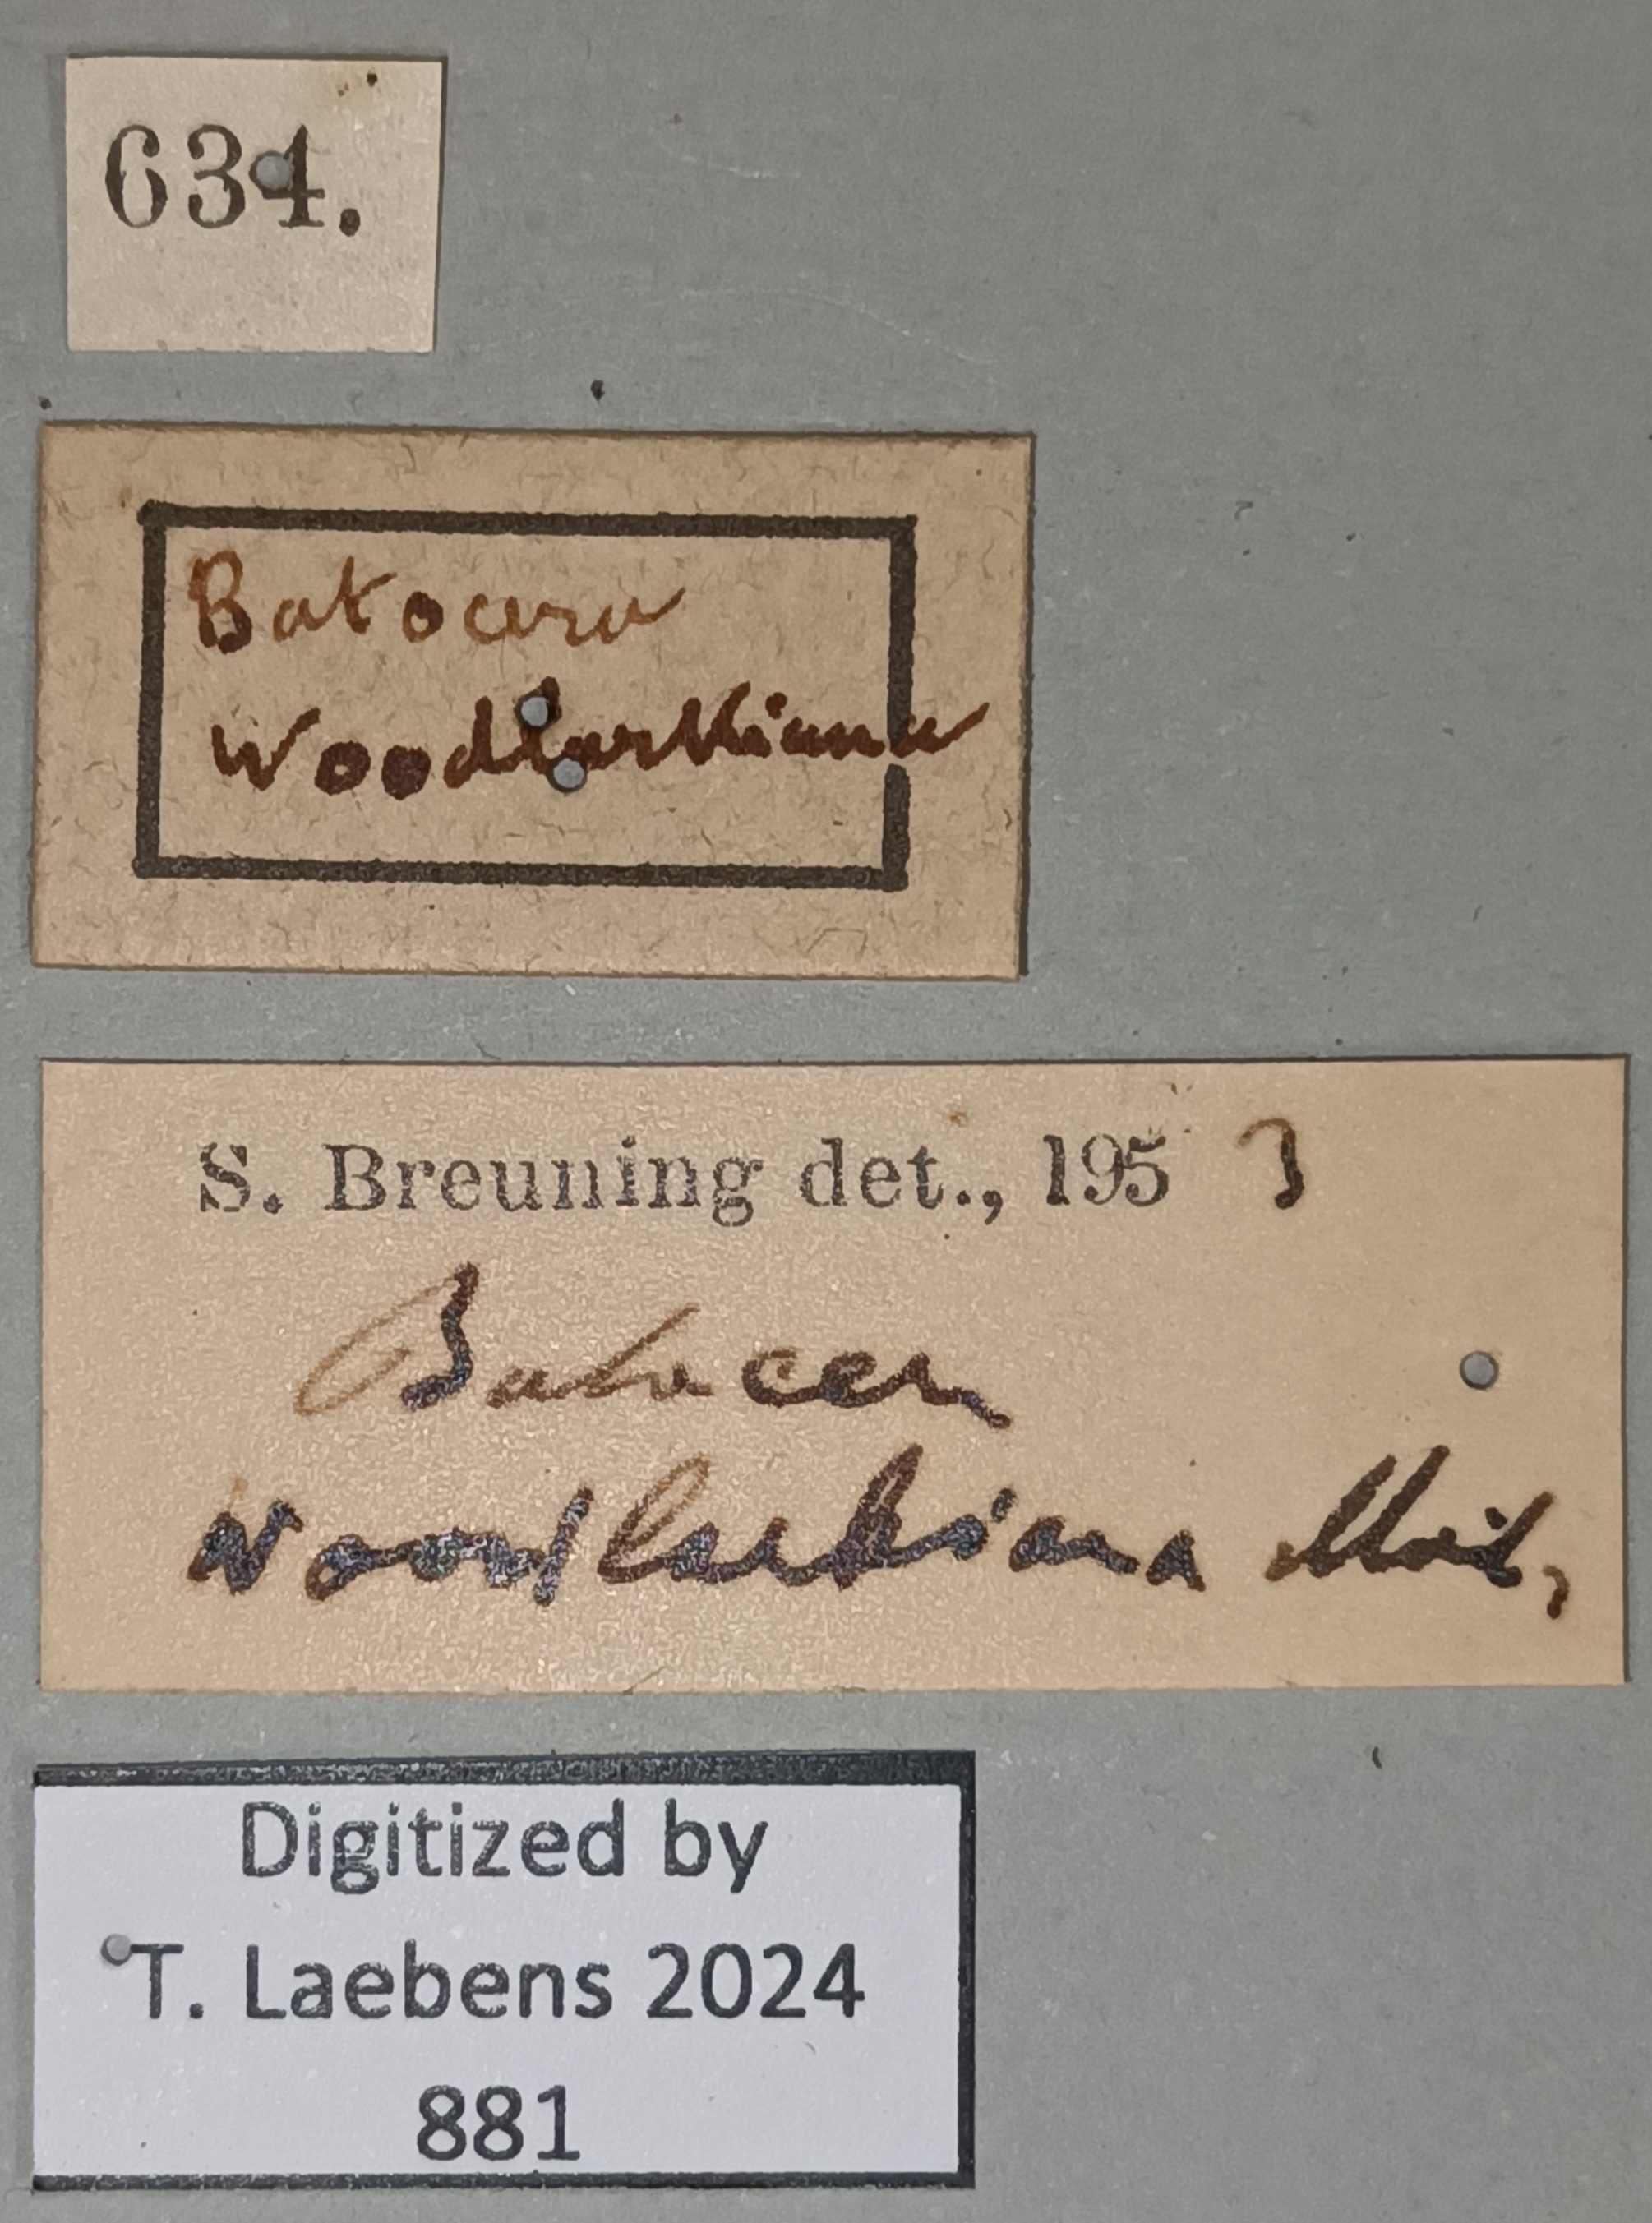 634.
Batocera
Woodlarkiana
S. Breuning det., 1953
Batocera
woodlarkiana
Digitized by
T. Laebens 2024
881